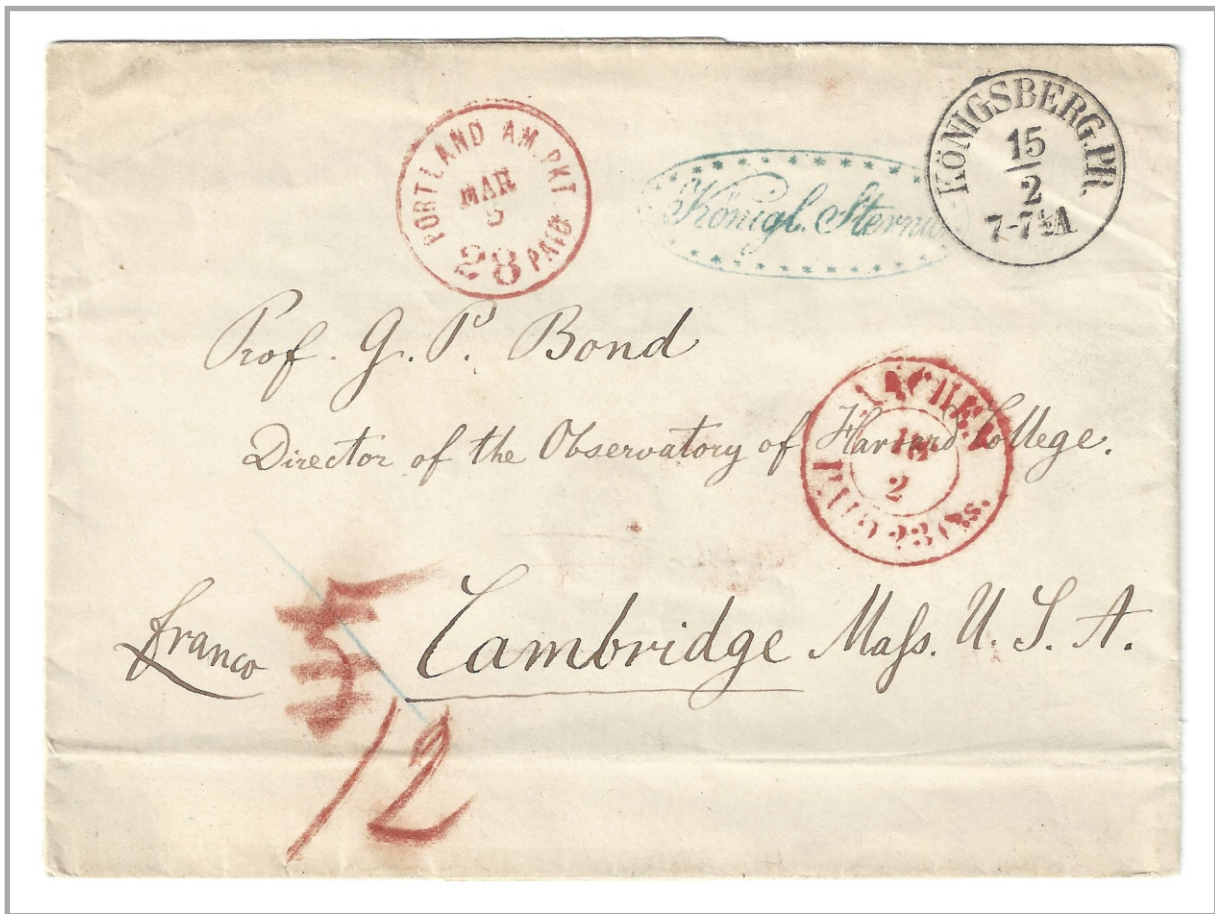 PORTLAND AM. PKT
MAR
5
28 PAID
Königl. Sternw
KÖNIGSBERG. PR.
15
2
7-7½A
Prof. G. P. Bond
Director of the Observatory of Harvard College.
AACHEN
18
2
PAID 23 Cts.
franco
Cambridge Mass. U. S. A.
12